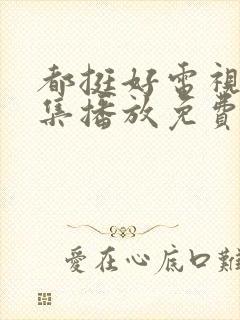 都挺好電視
集播放免費
愛在心底口難